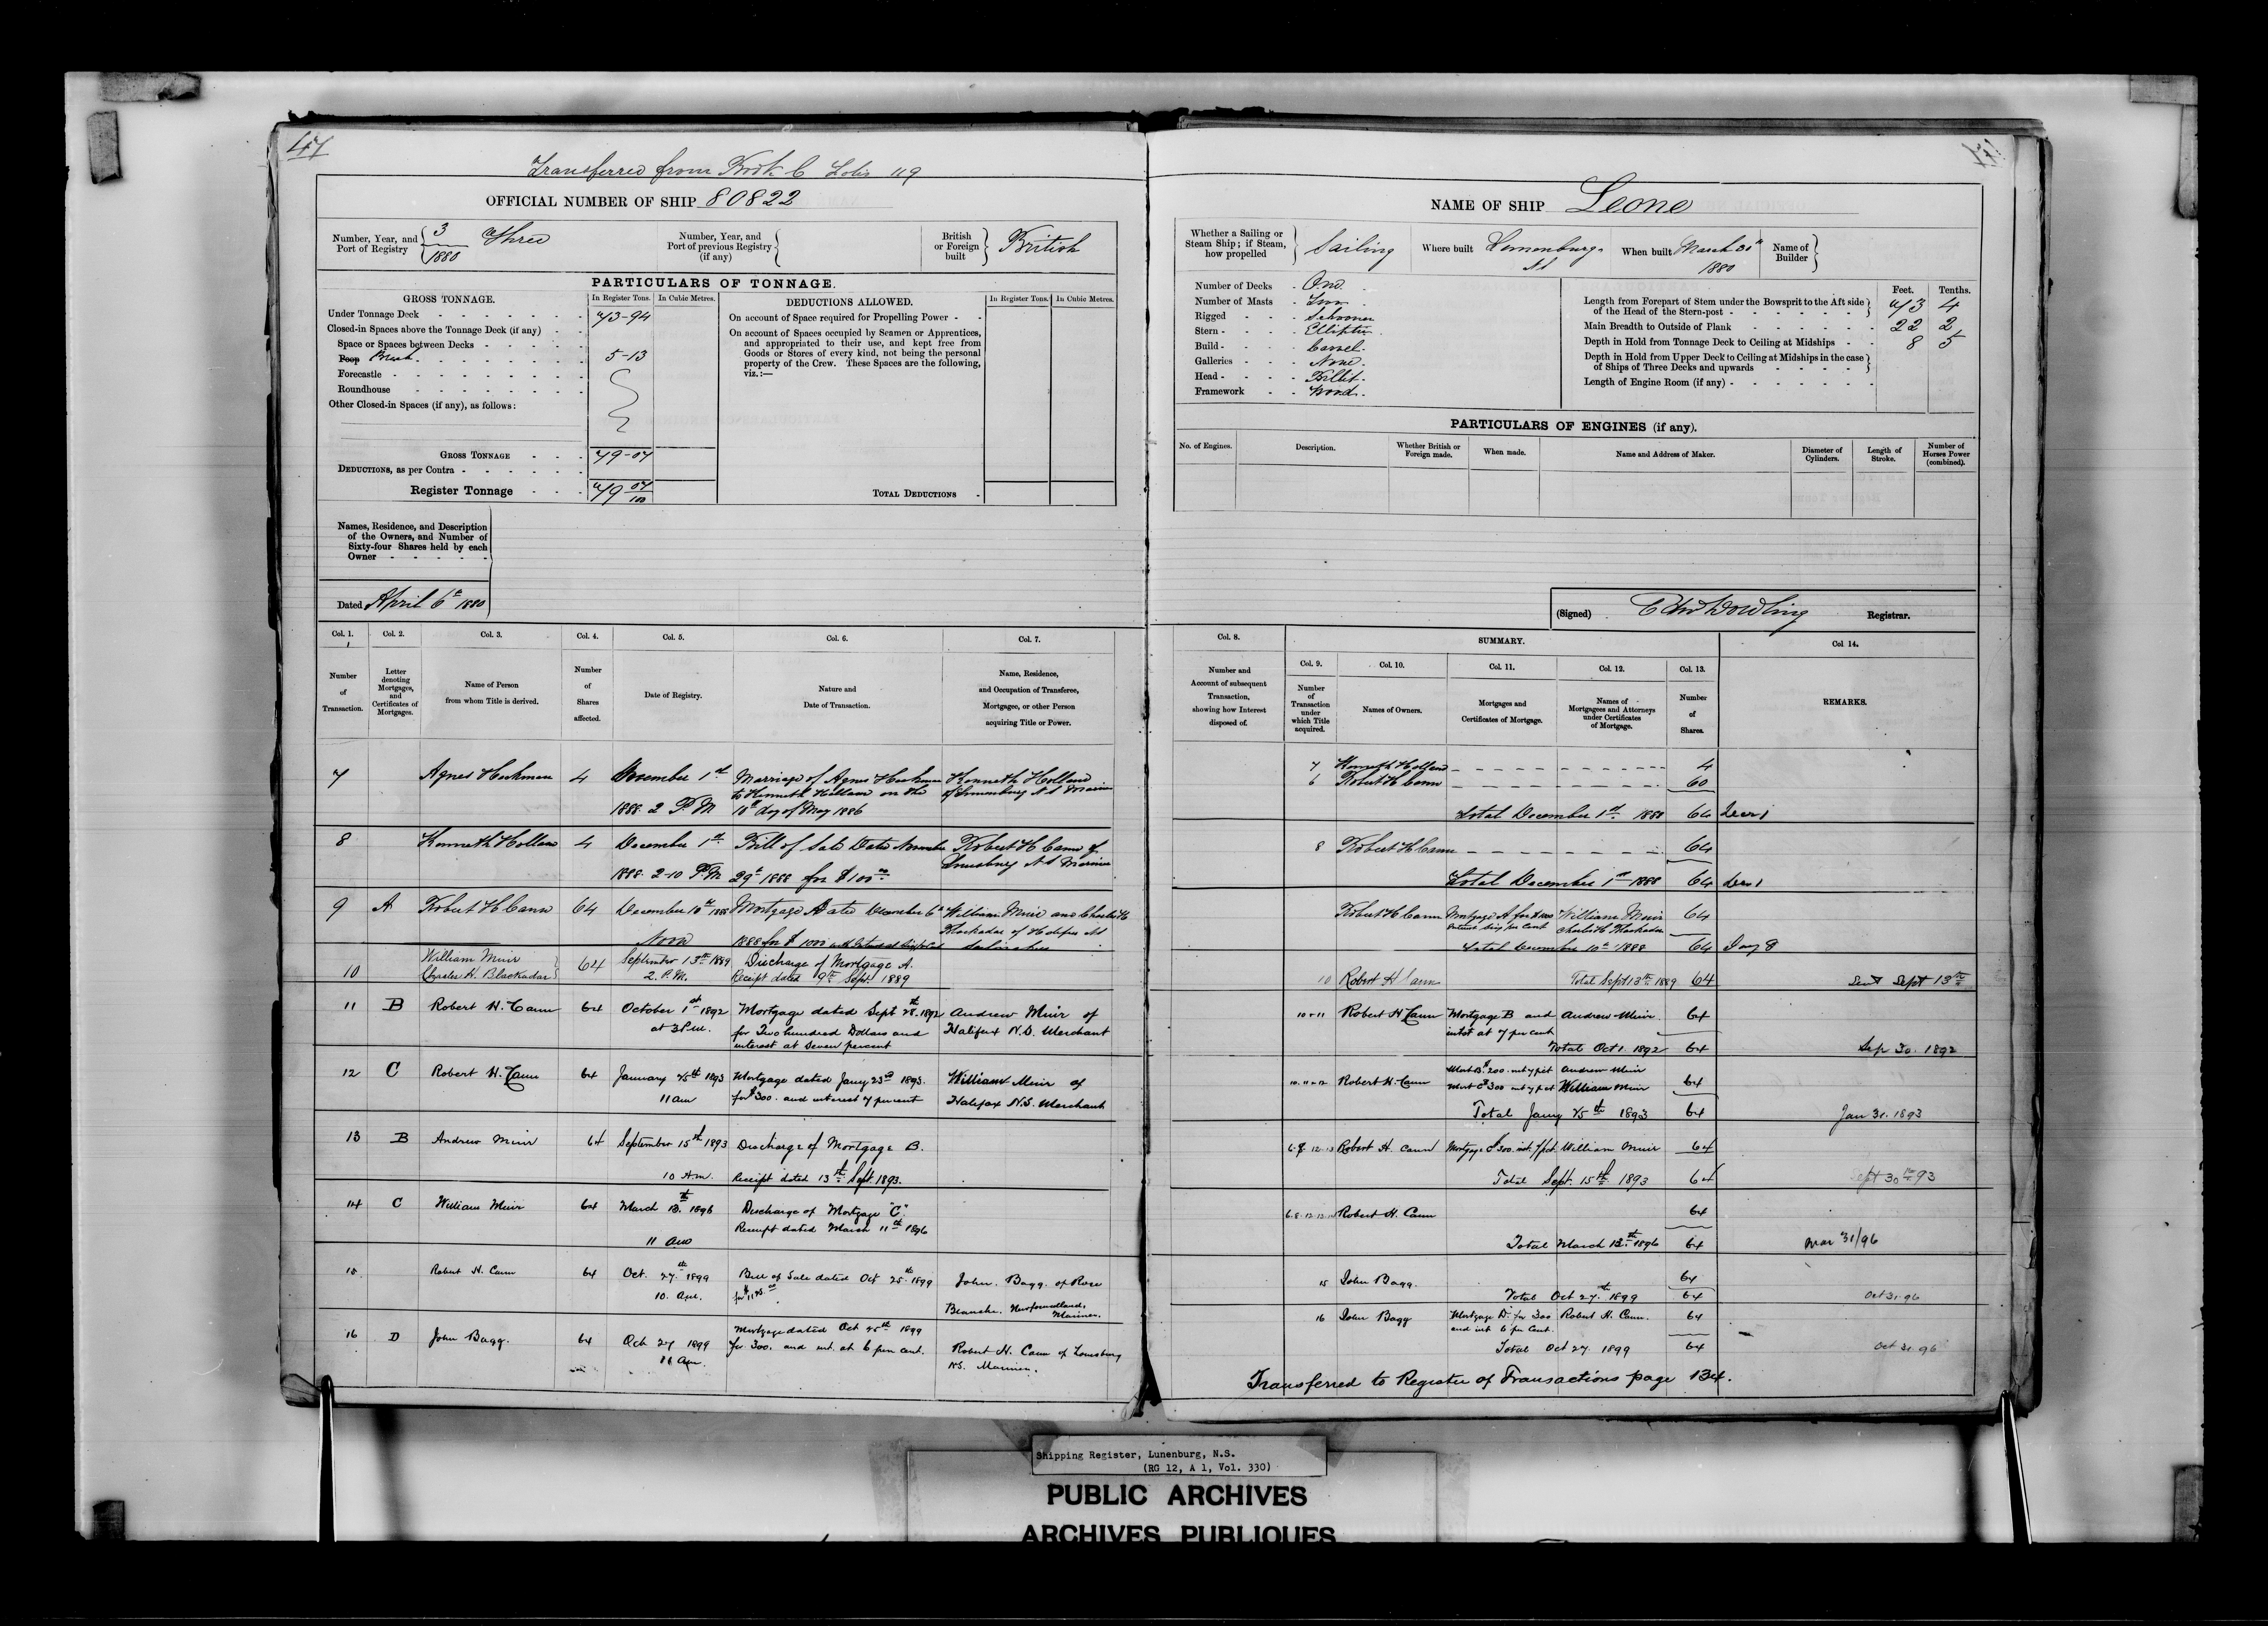 47
Transferred from Book C Folio 119
OFFICIAL NUMBER OF SHIP 80822
Number, Year, and Port of Registry { 3 / 1880 Three
Number, Year, and Port of previous Registry (if any) {
British or Foreign built } British
PARTICULARS OF TONNAGE.
GROSS TONNAGE. In Register Tons. In Cubic Metres.
Under Tonnage Deck 73-94
Closed-in Spaces above the Tonnage Deck (if any)
Space or Spaces between Decks
Poop Break 5-13
Forecastle
Roundhouse
Other Closed-in Spaces (if any), as follows:
GROSS TONNAGE 79-07
DEDUCTIONS, as per Contra
Register Tonnage 79 07/100
DEDUCTIONS ALLOWED. In Register Tons. In Cubic Metres.
On account of Space required for Propelling Power
On account of Spaces occupied by Seamen or Apprentices,
and appropriated to their use, and kept free from
Goods or Stores of every kind, not being the personal
property of the Crew. These Spaces are the following,
viz.:—
TOTAL DEDUCTIONS
Names, Residence, and Description
of the Owners, and Number of
Sixty-four Shares held by each
Owner
Dated April 6th 1880
Col. 1. Col. 2. Col. 3. Col. 4. Col. 5. Col. 6. Col. 7.
Number of Transaction.
Letter denoting Mortgages, and Certificates of Mortgages.
Name of Person from whom Title is derived.
Number of Shares affected.
Date of Registry.
Nature and Date of Transaction.
Name, Residence, and Occupation of Transferee, Mortgagee, or other Person acquiring Title or Power.
7 Agnes Heckman 4 December 1st Marriage of Agnes Heckman Kenneth Holland
to Kenneth Holland on the N S Mariner
1888 2 P.M 18th day of May 1886
8 Kenneth Holland 4 December 1st Bill of Sale Date November Robert H Cann of
N S Mariner
1888 2-10 P.M 29th 1888 for $100
9 A Robert H Cann 64 December 10th 1888 Mortgage A Date December 6th William Muir and Charles H
Blackadar of Halifax N S
Noon 1888 for $ 1000 with Interest at
10 William Muir
Charles H. Blackadar 64 September 13th 1889 Discharge of Mortgage A.
2. P.M. Receipt dated 9th Sept. 1889
11 B Robert H. Cann 64 October 1st 1892 Mortgage dated Sept 28th 1892 Andrew Muir of
at 3 P.M. for Two hundred Dollars and Halifax N.S. Merchant
interest at Seven percent
12 C Robert H. Cann 64 January 25th 1893 Mortgage dated Jany 23rd 1893. William Muir of
11 am for $300. and interest 7 percent Halifax N.S. Merchant
13 B Andrew Muir 64 September 15th 1893 Discharge of Mortgage B.
10 A.m. Receipt dated 13th Sept. 1893.
14 C William Muir 64 March 13th 1896 Discharge of Mortgage "C".
Receipt dated March 11th 1896
11 am
15 Robert H. Cann 64 Oct. 27th 1899 Bill of Sale dated Oct 25th 1899 John Bagg. of Rose
10. am.
Blanche, Newfoundland, Mariner.
16 D John Bagg. 64 Oct 27 1899 Mortgage dated Oct 25th 1899
for 300. and int. at 6 per cent. Robert H. Cann of Louisburg
N.S. Mariner.
NAME OF SHIP Leone
Whether a Sailing or Steam Ship; if Steam, how propelled } Sailing
Where built Lunenburg N S
When built March 30th 1880
Name of Builder }
Number of Decks One
Number of Masts Two
Rigged Schooner
Stern Elliptic
Build Carvel.
Galleries None.
Head Billet.
Framework Wood.
Feet. Tenths.
Length from Forepart of Stem under the Bowsprit to the Aft side of the Head of the Stern-post 73 4
Main Breadth to Outside of Plank 22 2
Depth in Hold from Tonnage Deck to Ceiling at Midships 8 5
Depth in Hold from Upper Deck to Ceiling at Midships in the case of Ships of Three Decks and upwards
Length of Engine Room (if any)
PARTICULARS OF ENGINES (if any).
No. of Engines. Description. Whether British or Foreign made. When made. Name and Address of Maker. Diameter of Cylinders. Length of Stroke. Number of Horses Power (combined).
(Signed) Edw Dowling Registrar.
Col. 8. SUMMARY. Col 14.
Col. 9. Col. 10. Col. 11. Col. 12. Col. 13.
Number and Account of subsequent Transaction, showing how Interest disposed of.
Number of Transaction under which Title acquired.
Names of Owners.
Mortgages and Certificates of Mortgage.
Names of Mortgagees and Attorneys under Certificates of Mortgage.
Number of Shares.
REMARKS.
7 Kenneth Holland 4
6 Robert H Cann 60
Total December 1st 1888 64 Decr 1
8 Robert H Cann 64
Total December 1st 1888 64 Decr 1
Robert H Cann Mortgage A for $1000 William Muir 64
Interest Six per Cent Charles H Blackadar
Total December 10th 1888 64
10 Robert H Cann Total Sept 13th 1889 64 Sent Sept 13th
10 + 11 Robert H Cann Mortgage B and Andrew Muir. 64
intst at 7 per cent
Total Oct 1. 1892 64 Sep 30. 1892
Mort B. 200. int 7 pct Andrew Muir
10. 11 + 12 Robert H. Cann Mort C $300 int 7 pct William Muir 64
Total Jany 25th 1893 64 Jan 31. 1893
6.8 12.13 Robert H. Cann Mortgage C 300. int. 7 pct. William Muir 64
Total Sept. 15th 1893 64 Sept 30th 93
Robert H. Cann 64
Total March 13th 1896 64 Mar 31/96
15 John Bagg. 64
Total Oct 27th 1899 64 Oct 31. 96
16 John Bagg Mortgage D. for 300 Robert H. Cann. 64
and int 6 per Cent.
Total Oct 27. 1899 64 Oct 31. 96
Transferred to Register of Transactions page 134.
Shipping Register, Lunenburg, N.S.
(RG 12, A 1, Vol. 330)
PUBLIC ARCHIVES
ARCHIVES PUBLIQUES